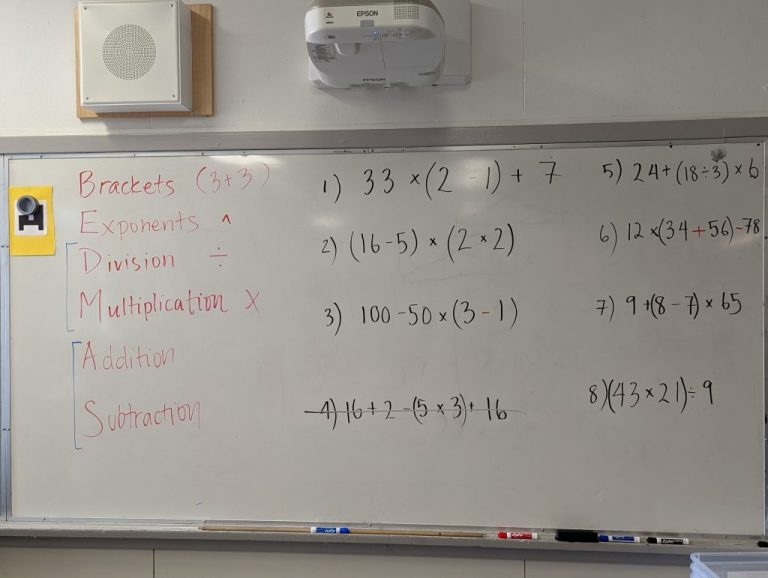 EPSON
EPSON
Brackets (3+3)
Exponents ^
Division ÷
Multiplication X
Addition
Subtraction
1) 33 × (2 - 1) + 7
2) (16-5) × (2 × 2)
3) 100 - 50 × (3 - 1)
4) 16 + 2 - (5 × 3) + 16
5) 24 + (18 ÷ 3) × 6
6) 12 × (34 + 56) - 78
7) 9 + (8 - 7) × 65
8) (43 × 21) ÷ 9